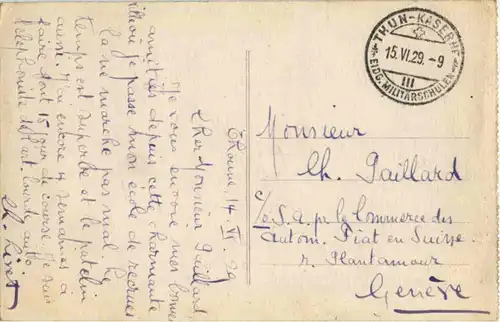 Thoune, 14 VI 29
Cher Monsieur Paillard
Je vous envoie mes bonnes
amitiés depuis cette charmante
où je passe mon école de recrues
La vie marche pas mal. Le
temps est superbe et le patelin
aussi. J'ai encore 4 semaines à
faire dont 15 jour de course. Je suis
téléphoniste art. lourde auto
Ch.
THUN-KASERNE
15.VI.29.-9
III
EIDG. MILITÄRSCHULEN
Monsieur
Ch. Paillard
c/o S.A. pr le Commerce des
Autom. Fiat en Suisse
r. Plantamour
Genève